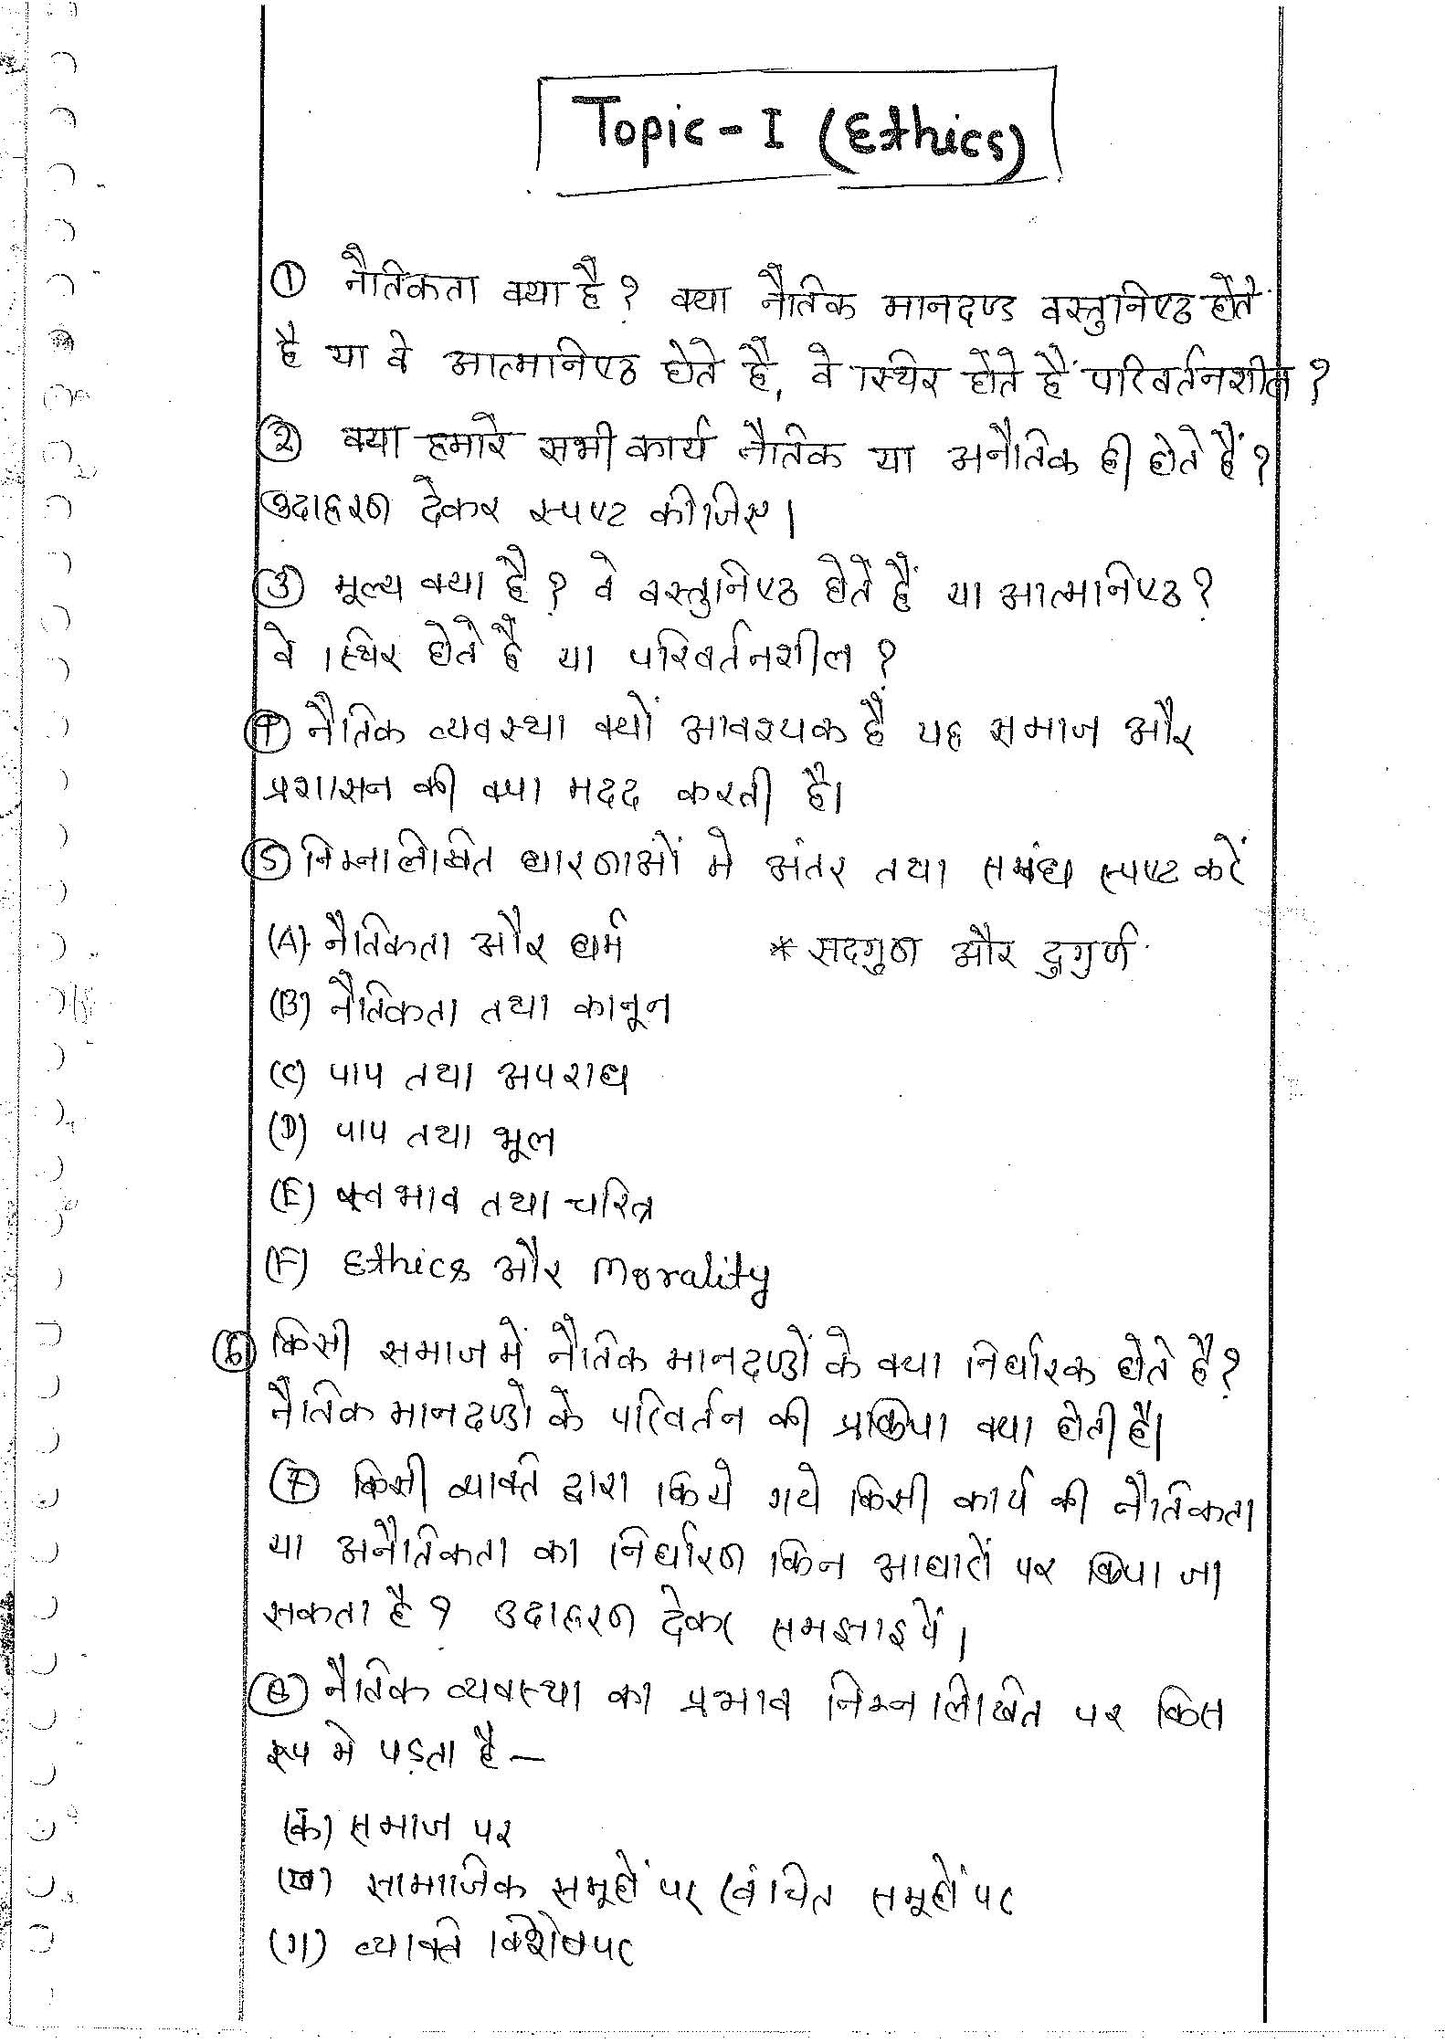 Topic - I (Ethics)
① नैतिकता क्या है ? क्या नैतिक मानदण्ड वस्तुनिष्ठ होते
है या वे आत्मनिष्ठ होते है, वे स्थिर होते हैं परिवर्तनशील ?
② क्या हमारे सभी कार्य नैतिक या अनैतिक ही होते हैं ?
उदाहरण देकर स्पष्ट कीजिए।
③ मूल्य क्या है ? वे वस्तुनिष्ठ होते हैं या आत्मनिष्ठ ?
वे स्थिर होते है या परिवर्तनशील ?
④ नैतिक व्यवस्था क्यों आवश्यक हैं यह समाज और
प्रशासन की क्या मदद करती है।
⑤ निम्नलिखित धारणाओं मे अंतर तथा सम्बंध स्पष्ट करें
(A) नैतिकता और धर्म * सदगुण और दुगुर्ण
(B) नैतिकता तथा कानून
(C) पाप तथा अपराध
(D) पाप तथा भूल
(E) स्वभाव तथा चरित्र
(F) Ethics और Morality
⑥ किसी समाज में नैतिक मानदण्डों के क्या निर्धारक होते है ?
नैतिक मानदण्डो के परिवर्तन की प्रक्रिया क्या होती है।
⑦ किसी व्यक्ति द्वारा किये गये किसी कार्य की नैतिकता
या अनैतिकता का निर्धारण किन आधारों पर किया जा
सकता है ? उदाहरण देकर समझाइयें।
⑧ नैतिक व्यवस्था का प्रभाव निम्नलिखित पर किस
रूप मे पड़ता है —
(क) समाज पर
(ख) सामाजिक समूहों पर (वंचित समूहों पर
(ग) व्यक्ति विशेष पर